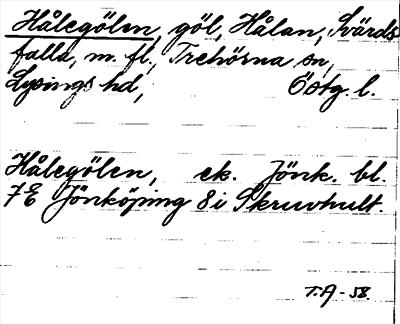 Hålegölen, göl, Hålan, Svärds
falla, m. fl., Trehörna sn,
Lysings hd, Östg. l.
Hålegölen, ek. Jönk. bl.
7E Jönköping 8i Skruvhult.
T.A - 58.